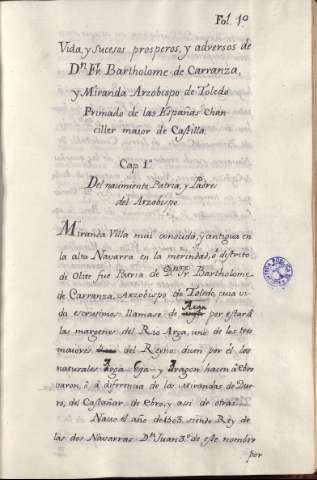 Fol. 10
Vida, y sucesos prosperos, y adversos de
Dn. Fr. Bartholome de Carranza,
y Miranda Arzobispo de Toledo
Primado de las Españas Chan
ciller maior de Castilla.
Cap. 1º
Del nacimiento Patria, y Padres
del Arzobispo.
Miranda Villa mui conocida, y antigua en
la alta Navarra en la merindad, ó distrito
de Olite fue Patria de Dn. Fr. Bartholome
de Carranza, Arzobispo de Toledo, cuia vi
da escrivimos: llamase de Arga por estar á
las margenes del Rio Arga, uno de los tres
maiores del Reyno: dicen por él los
naturales Arga Ega y Aragon hacen á Ebro
varon, ó á diferencia de las Mirandas de Due
ro, del Castañar, de Ebro, y asi de otras.
Nacio el año de 1503. siendo Rey de
las dos Navarras Dn. Juan 3º de este nombre
por